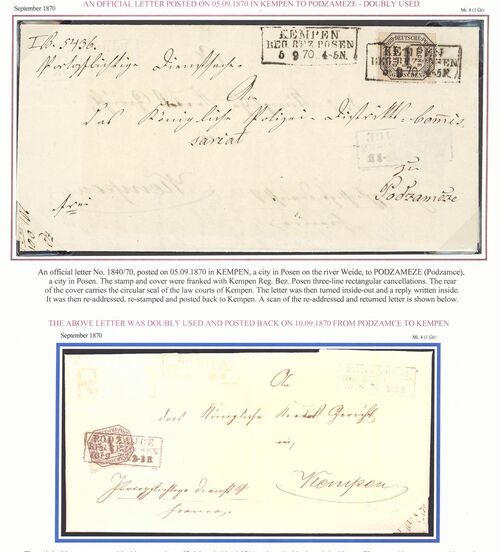 AN OFFICIAL LETTER POSTED ON 05.09.1870 IN KEMPEN TO PODZAMEZE - DOUBLY USED
September 1870
Mi. 4 (1 Gr)
KEMPEN
REG. BEZ. POSEN
5 9 70 4-5N.
KEMPEN
REG. BEZ. POSEN
5 9 70 4-5N.
I B. 5436.
Portopflichtige Dienstsache.
An
das Königliche Polizei-Distrikts-Commis
sariat
zu
Podzamcze
frei
An official letter No. 1840/70, posted on 05.09.1870 in KEMPEN, a city in Posen on the river Weide, to PODZAMEZE (Podzamce),
a city in Posen. The stamp and cover were franked with Kempen Reg. Bez. Posen three-line rectangular cancellations. The rear
of the cover carries the circular seal of the law courts of Kempen. The letter was then turned inside-out and a reply written inside.
It was then re-addressed, re-stamped and posted back to Kempen. A scan of the re-addressed and returned letter is shown below.
THE ABOVE LETTER WAS DOUBLY USED AND POSTED BACK ON 10.09.1870 FROM PODZAMCE TO KEMPEN
September 1870
Mi. 4 (1 Gr)
An
das Königliche Kreis Gericht
in
Kempen